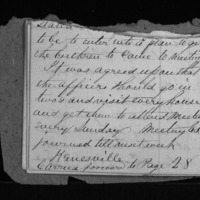 to be to enter into a plan to get
the bretheren to Come to Meeting
It was agreed upon that
the officers should go in
two's and visit every House
and get them to attend Meeting
every Sunday. Meeting ad
journed till next week
Kanesville
Carried forward to Page 28